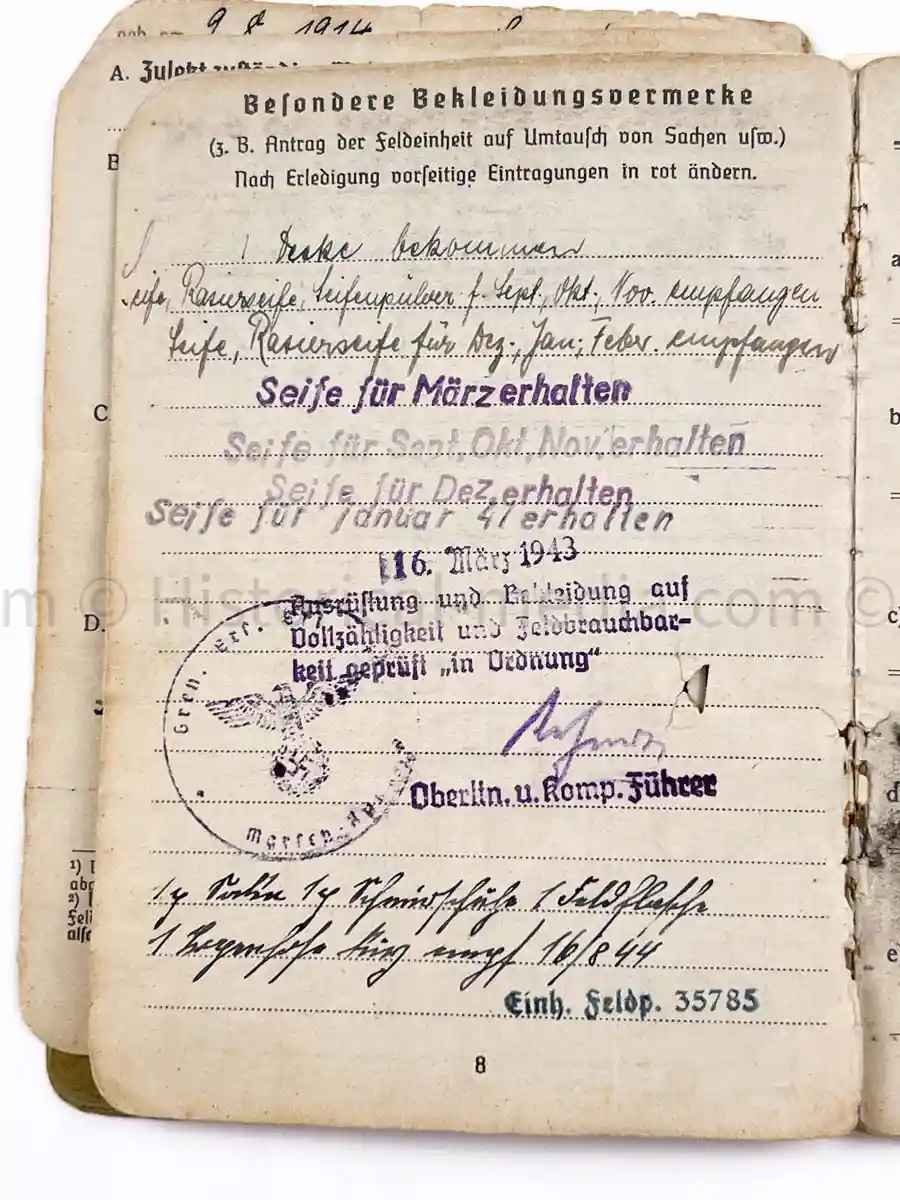 geb. am 9 8 1914
A. Zuletzt zuständi
B
C
D.
Besondere Bekleidungsvermerke
(z. B. Antrag der Feldeinheit auf Umtausch von Sachen usw.)
Nach Erledigung vorseitige Eintragungen in rot ändern.
1 Decke bekommen
Seife, Rasierseife, Seifenpulver f. Sept., Okt., Nov. empfangen
Seife, Rasierseife für Dez., Jan., Feber. empfangen
Seife für März erhalten
Seife für Sept, Okt, Nov, erhalten
Seife für Dez, erhalten
Seife für Januar 41 erhalten
16. März 1943
Ausrüstung und Bekleidung auf
Vollzähligkeit und Feldbrauchbar-
keit geprüft „in Ordnung“
Gren. Ers.
Marsch
Oberltn. u. Komp. Führer
1 Schnürschuhe 1 Feldflasche
1 kurz empf 16/8 44
Einh. Feldp. 35785
8
1)
2)
a
b
c)
d
e
m © Historica Media.com ©